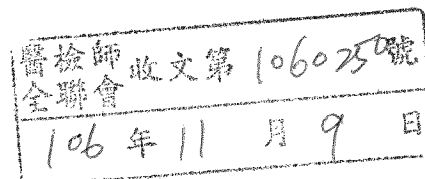 醫檢師全聯會收文第1060250號
106年11月9日